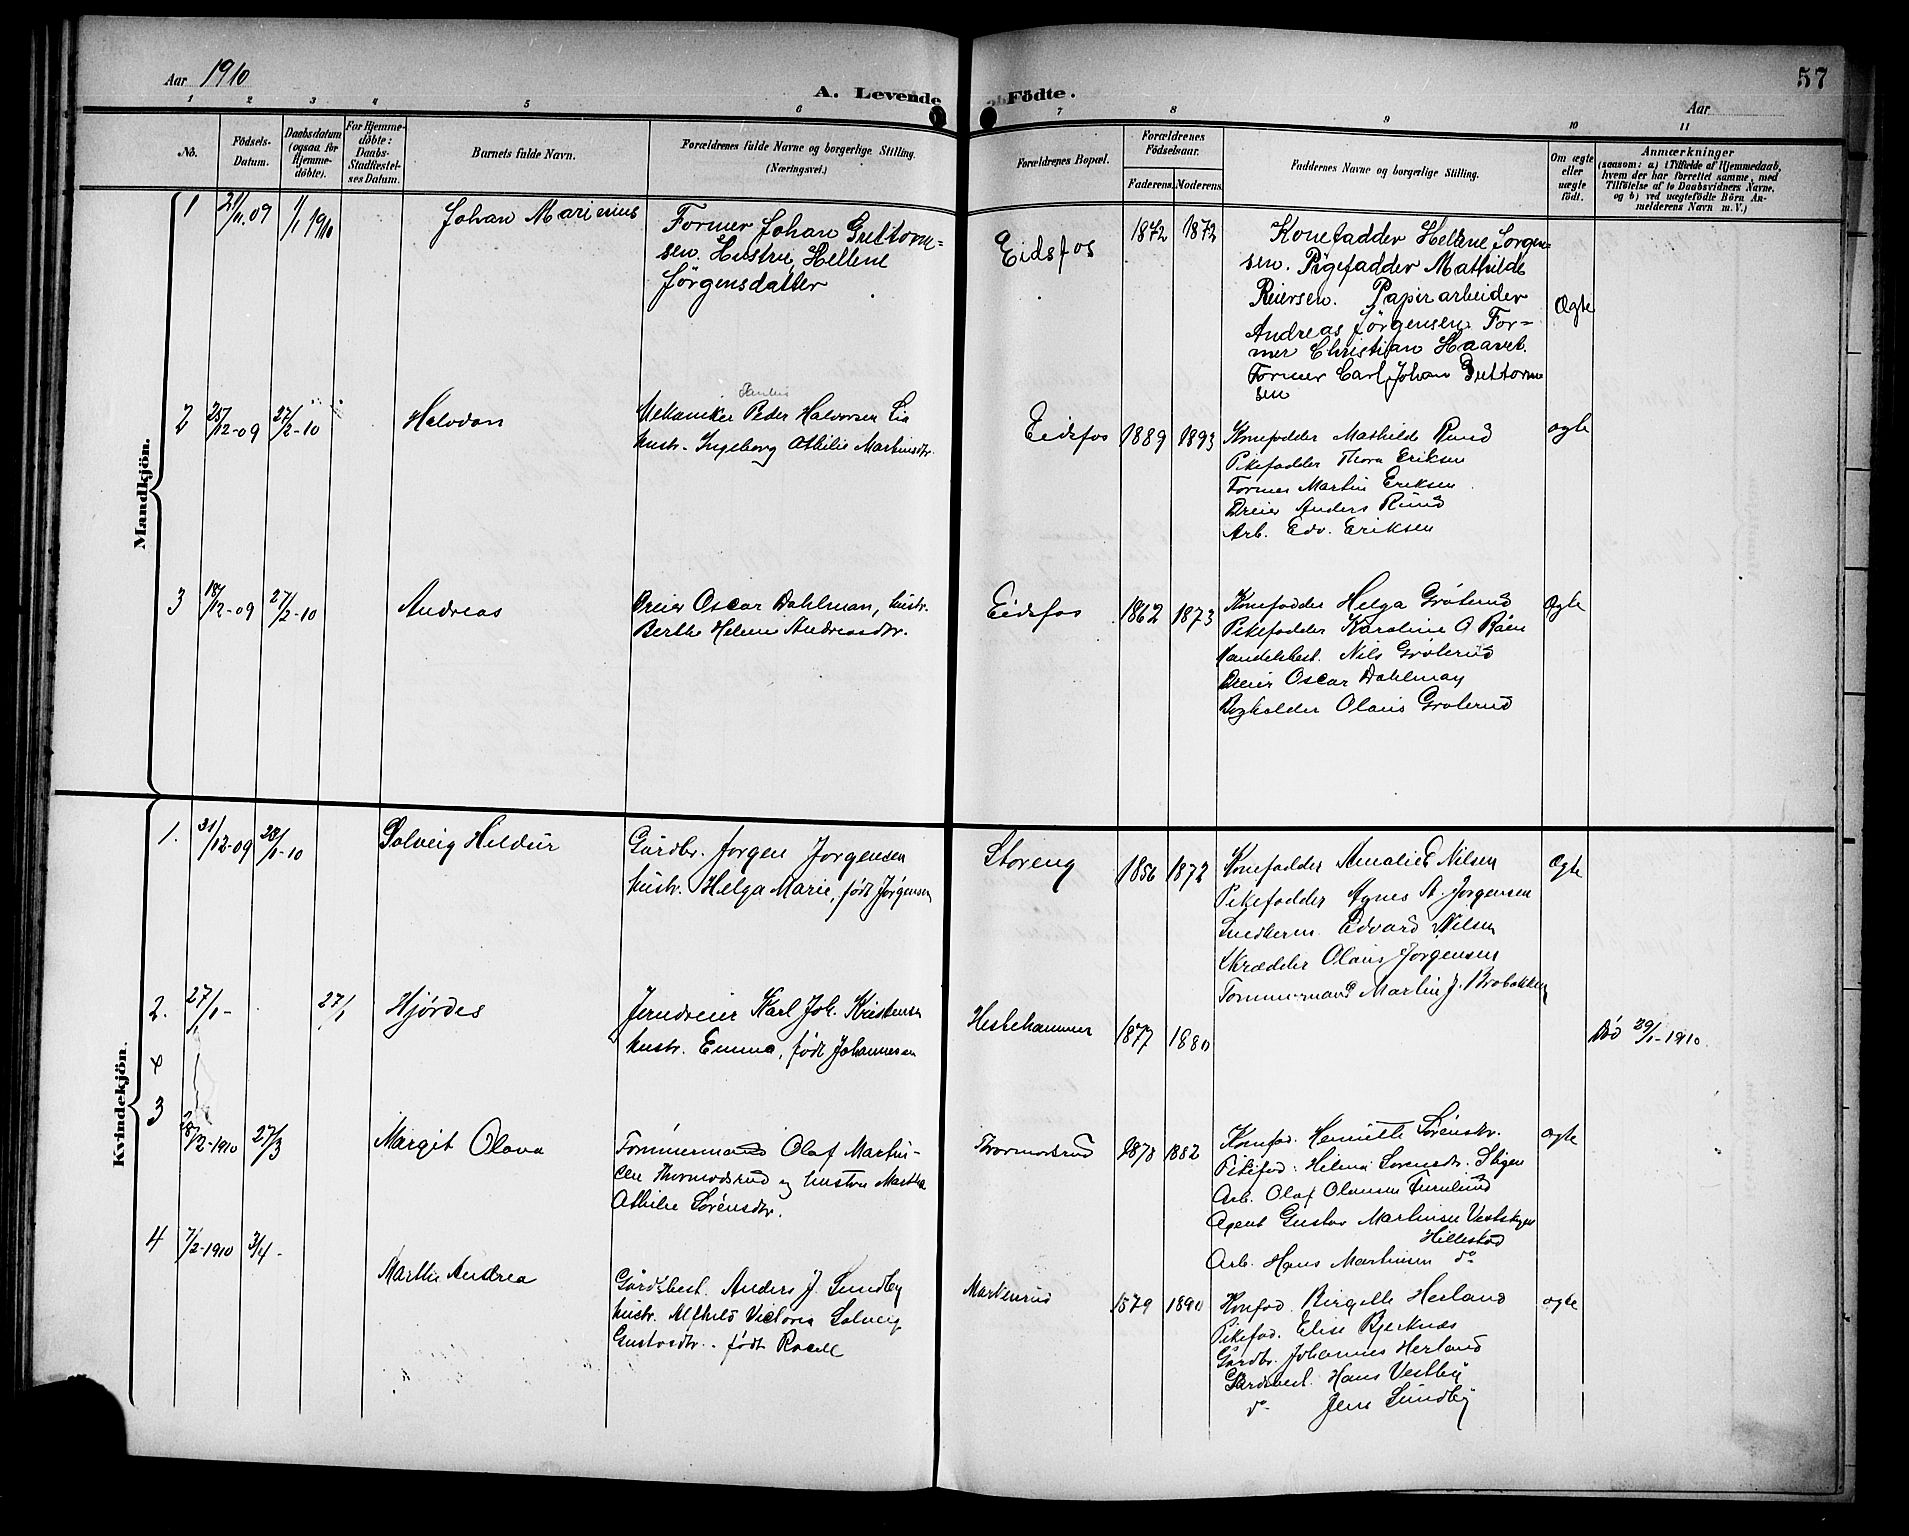 Aar 1910
A. Levende Födte.
57
Aar
1 2 3 4 5 6 7 8 9 10 11
No.
Födsels-Datum.
Daabsdatum (ogsaa for Hjemme-döbte).
For Hjemme-döbte: Daabs-Stadfæstel-ses Datum.
Barnets fulde Navn.
Forældrenes fulde Navne og borgerlige Stilling.
(Næringsvei.)
Forældrenes Bopæl.
Forældrenes Födselsaar.
Faderens. Moderens.
Faddernes Navne og borgerlige Stilling.
Om ægte eller uægte födt.
Anmærkninger
(saasom: a) i Tilfælde af Hjemmedaab,
hvem der har forrettet samme, med
Tilföielse af to Daabsvidners Navne,
og b) ved uægtefödte Börn An-
melderens Navn m. V.)
Mandkjön.
1 21/11.09 1/1 1910 Johan Marienius
Former Johan Guttorm=
sen. Hustru, Hellene
Jörgensdatter
Eidsfos 1872 1872
Konefadder Hellene Jorgen=
sen. Pigefadder Mathilde
Reiersen. Papirarbeider
Andreas Jörgensen. For=
mer Christian Haavet.
Former Carl Johan Guttorm
sen
Ægte
2 25/12-09 27/2-10 Halvdan
Mekaniker Peder Halvorsen Lia
hustr. Ingeborg Athilie Martinsdtr.
Eidsfos 1889 1893
Konefadder Mathilde Ruud
Pikefadder Thora Eriksen
Former Martin Eriksen
Dreier Anders Ruud
Arb. Edv. Eriksen
ægte
3 18/12-09 27/2-10 Andreas
Dreier Oscar Dahlman, hustr.
Berthe Helene Andreasdtr.
Eidsfos 1862 1873
Konefadder Helga Gröterud
Pikefadder Karoline O Röen
Handelsbest. Nils Gröterud
Dreier Oscar Dahlman
Bogholder Olaus Groterud
Ægte
Kvindekjön.
1. 31/12-09 23/1-10 Solveig Hildur
Gårdbr. Jorgen Jorgensen
hustr. Helga Marie, født Jørgensen
Storeng 1856 1872
Konefadder Amalie E Nilsen
Pikefadder Agnes A. Jorgensen
Snedkerm. Edvard Nilsen
Skrædder Olaus Jorgensen
Tømmermand Martin J. Brobakken
Ægte
2. 27/1- 27/1 Hjørdes
Jerndreier Karl Joh. Kristensen
hustr. Emma, født Johannesen
Hestehammer 1877 1880
Död 29/1-1910
x
3 28/2-1910 27/3 Margit Olava
Tømmermand Olaf Martin-
sen Thormodsrud og hustru Marthe
Athilie Sørensdtr.
Tormodsrud 1878 1882
Konfad. Henriette Sørensdtr.
Pikefad: Hilma Sorensdtr. Stigen
Arb. Olaf Olausen Furulund
Agent Gustav Martinsen
Hillestad
Arb. Hans Martinsen do
ægte
4 7/2-1910 3/4- Marthe Andrea
Gårdsbest. Anders J. Sundby
hustr. Alfhild Victoria Solveig
Gustavsdtr. født
Markerud 1879 1890
Konfad. Birgitte Herland
Pikefad. Elise Bjerknæs
Gårdbr. Johannes Herland
Gårdsbest. Hans Vestby
do Jens Sundby
ægte